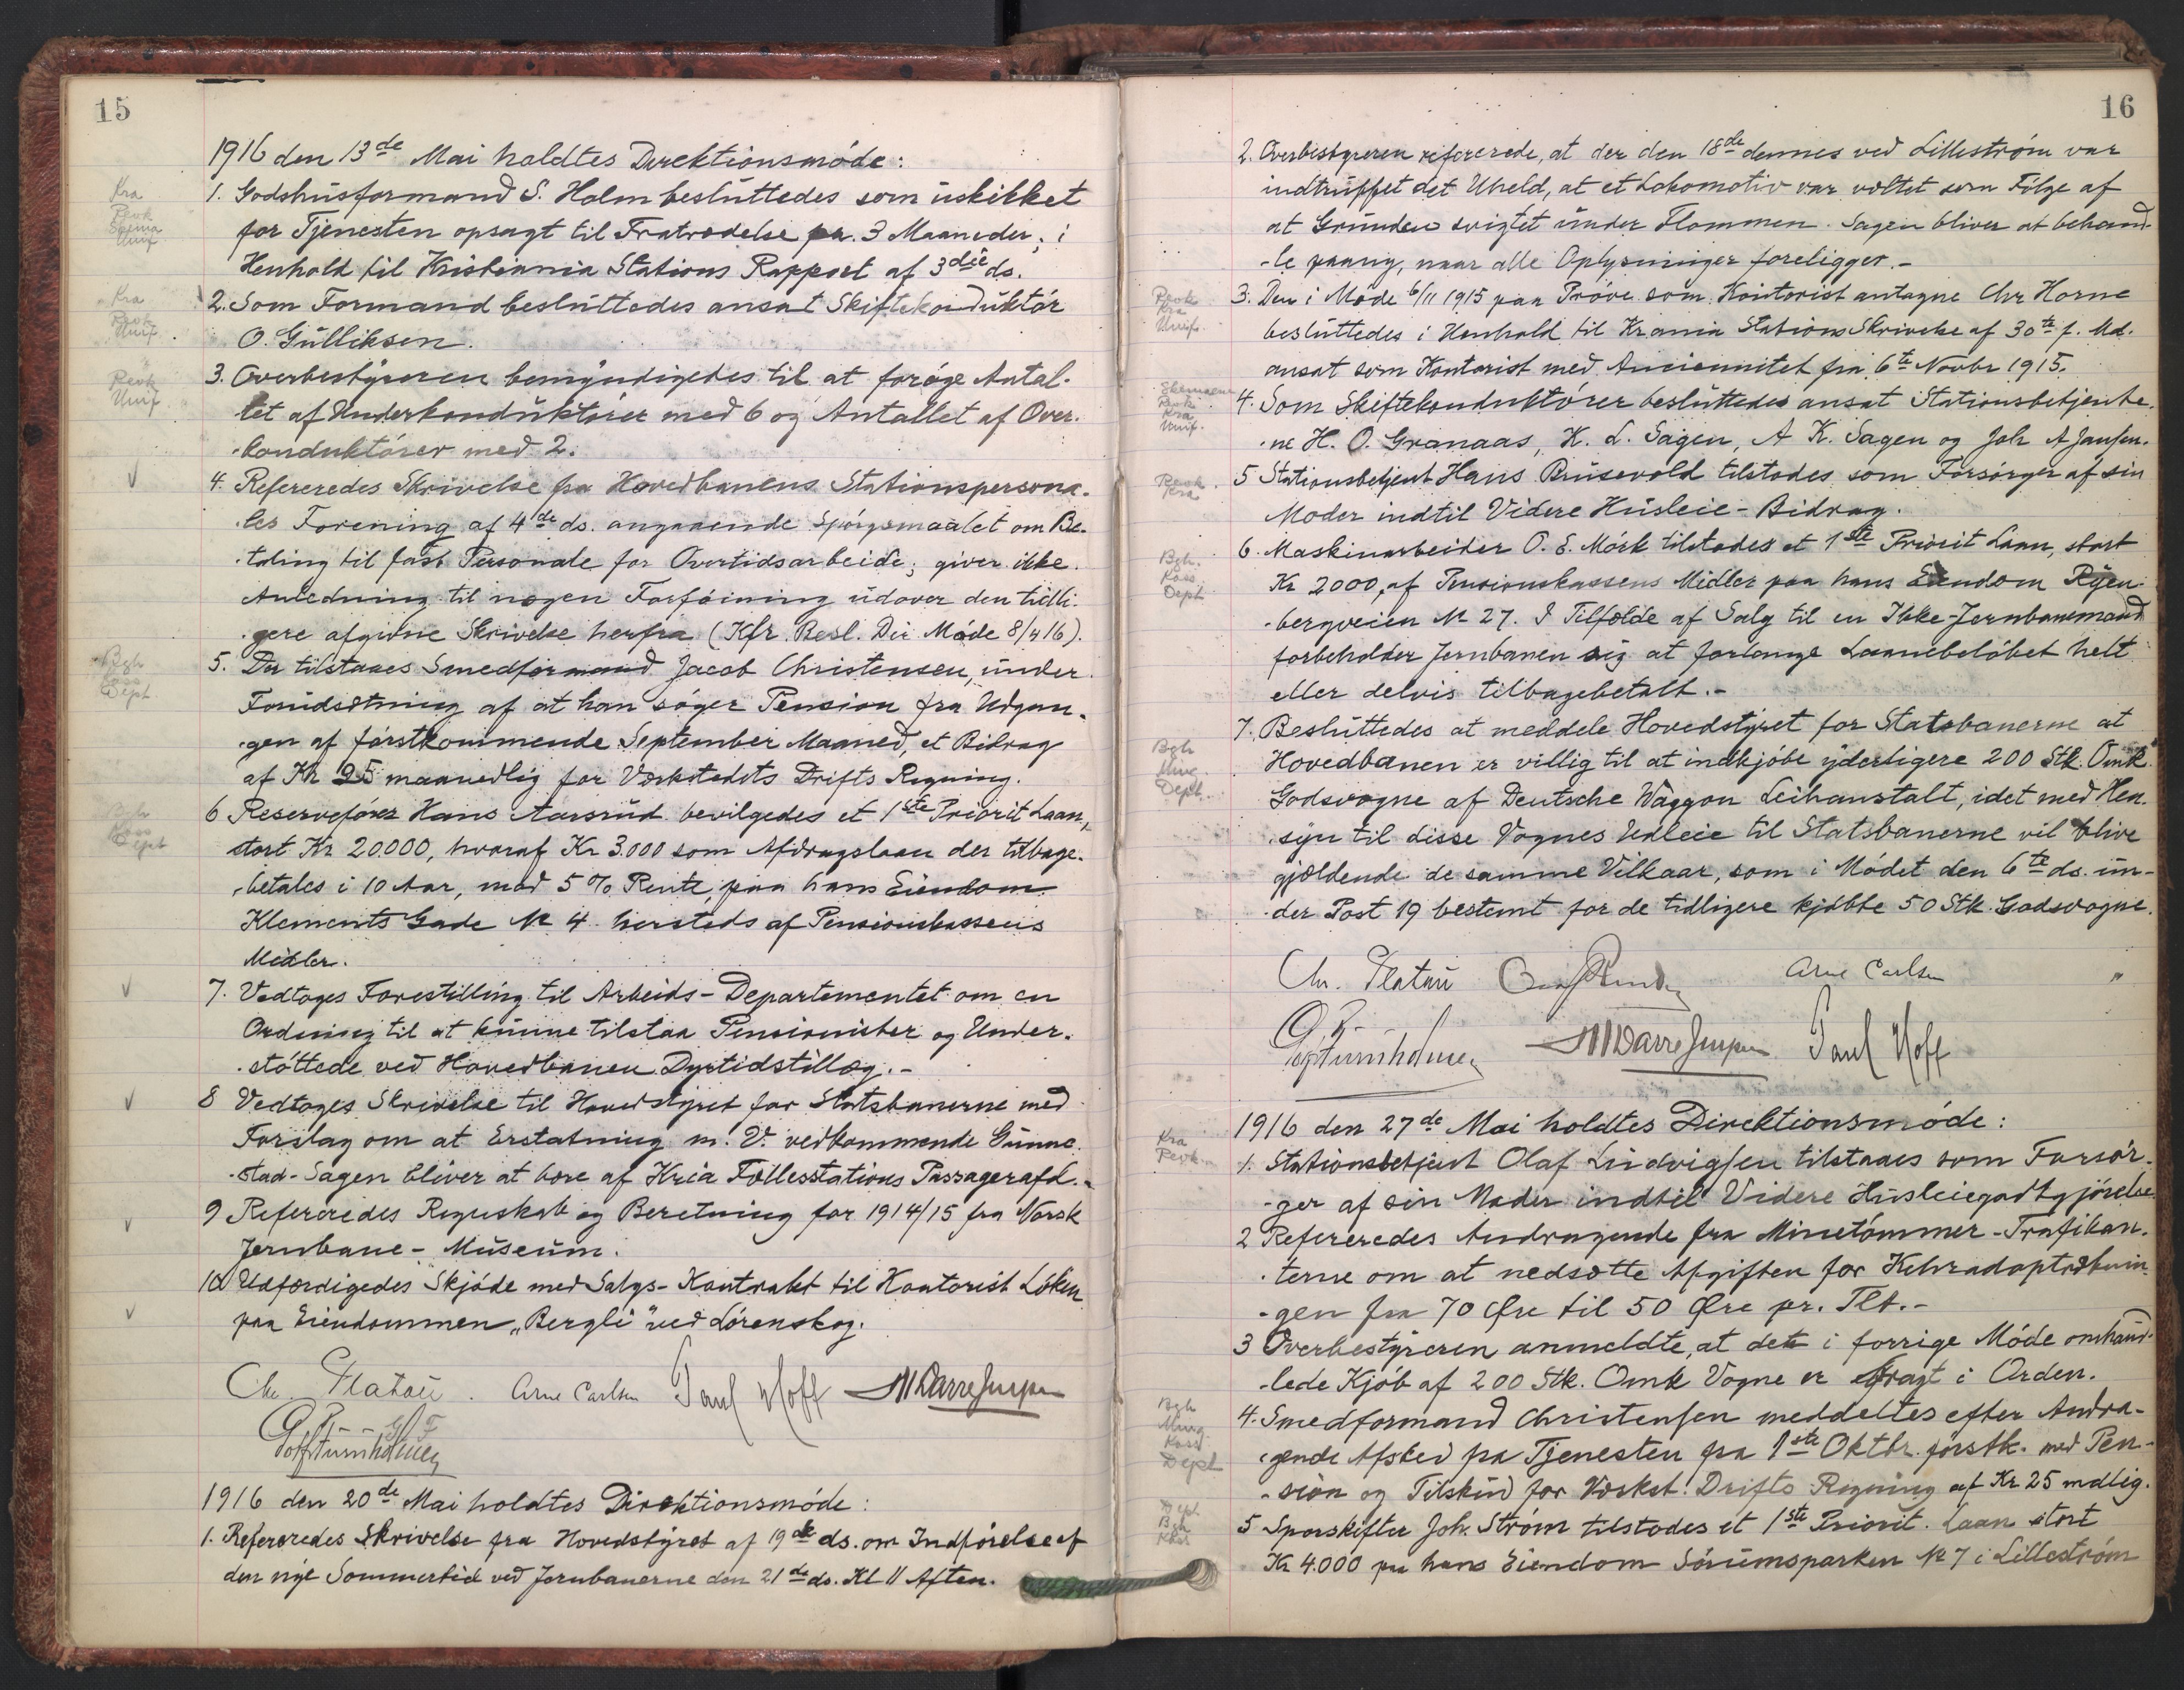 15
1916 den 13de Mai holdtes Direktionsmöde:
Kra
1. Godshusformand S. Holm besluttedes som uskikket
for Tjenesten opsagt til Fratrædelse pr. 3 Maaneder, i
Henhold til Kristiania Stations Rapport af 3die ds.
Kra
2. Som Formand besluttedes ansat Skiftekonduktör
O. Gulliksen.
3. Overbestyreren bemyndigedes til at foröge Antal-
let af Underkonduktörer med 6 og Antallet af Over-
konduktörer med 2.
4. Refereredes Skrivelse fra Hovedbanens Stationspersona-
les Forening af 4de ds. angaaende Spörgsmaalet om Be-
taling til fast Personale for Overtidsarbeide; giver ikke
Anledning til nogen Forföining udover den tidli-
gere afgivne Skrivelse herfra (Kfr. Besl. Dir. Möde 8/4 16).
Bgh
Kass
Dept.
5. Der tilstaaes Smedformand Jacob Christensen, under
Forudsætning af at han söger Pension fra Udgan-
gen af förstkommende September Maaned, et Bidrag
af Kr 25 maanedlig for Værkstedets Drifts Regning.
Bgh
Kass
Dept
6 Reserveförer Hans Aarsrud bevilgedes et 1ste Priorit Laan,
stort Kr 20.000, hvoraf Kr 3.000 som Afdragslaan der tilbage-
betales i 10 Aar, mod 5 % Rente, paa hans Eiendom
Klements Gade № 4 hersteds af Pensionskassens
Midler.
7. Vedtoges Forestilling til Arbeids-Departementet om en
Ordning til at kunne tilstaa Pensionister og Under-
støttede ved Hovedbanen Dyrtidstillæg.-
8 Vedtoges Skrivelse til Hovedstyret for Statsbanerne med
Forslag om at Erstatning m. V. vedkommende Gunne-
stad-Sagen bliver at bære af Kria Fællesstations Passagerafd.-
9 Refereredes Regnskab og Beretning for 1914/15 fra Norsk
Jernbane-Museum.
10 Udfærdigedes Skjöde med Salgs-Kontrakt til Kontorist Löken
paa Eiendommen „Bergli" ved Lörenskog.
Chr. Platou. Arne Carlsen Paul Hoff
1916 den 20de Mai holdtes Direktionsmöde:
1. Refereredes Skrivelse fra Hovedstyret af 19de ds. om Indförelse af
den nye Sommertid ved Jernbanerne den 21de ds. Kl 11 Aften.
16
2. Overbestyreren refererede, at der den 18de dennes ved Lilleström var
indtruffet det Uheld, at et Lokomotiv var væltet som Fölge af
at Grunden svigtet under Flommen. Sagen bliver at behand-
le paany, naar alle Oplysninger foreligger.-
3. Den i Möde 6/11 1915 paa Pröve som Kontorist antagne Chr Horne
besluttedes i Henhold til Krania Stations Skrivelse af 30te f. Md.
ansat som Kontorist med Anciennitet fra 6te Novbr 1915.
4. Som Skiftekonduktörer besluttedes ansat Stationsbetjente-
ne H. O. Granaas, K. L. Sagen, A K. Sagen og Joh A Jansen.
5 Stationsbetjent Hans Brusevold tilstodes som Forsörger af sin
Moder indtil Videre Husleie-Bidrag.
Bgh.
Kass.
Dept
6. Maskinarbeider O. E. Mörk tilstodes et 1ste Priorit Laan, stort
Kr 2000, af Pensionskassens Midler paa hans Eiendom Ryen-
bergveien № 27. I Tilfælde af Salg til en Ikke-Jernbanemand
forbeholder Jernbanen sig at forlange Laanebelöbet helt
eller delvis tilbagebetalt.-
Bgh
Dept.
7. Besluttedes at meddele Hovedstyret for Statsbanerne at
Hovedbanen er villig til at indkjöbe yderligere 200 Stk. Omk
Godsvogne af Deutsche Waggon Leihanstalt, idet med Hen-
syn til disse Vognes Udleie til Statsbanerne vil blive
gjældende de samme Vilkaar, som i Mödet den 6te ds. un-
der Post 19 bestemt for de tidligere kjöbte 50 Stk. Godsvogne.
Chr. Platou Arne Carlsen
Paul Hoff
1916 den 27de Mai holdtes Direktionsmöde:
Kra
1. Stationsbetjent Olaf Ludvigsen tilstaaes som Forsör-
ger af sin Moder indtil Videre Husleiegodtgjörelse
2 Refereredes Andragende fra Minetömmer-Trafikan-
terne om at nedsætte Afgiften for Kehradoptræknin-
gen fra 70 Øre til 50 Øre pr. Tlt.-
3 Overbestyreren anmeldte, at det i forrige Möde omhand-
lede Kjöb af 200 Stk. Omk Vogne er bragt i Orden.
Bgh
Kass
Dept
4. Smedformand Christensen meddeltes efter Andra-
gende Afsked fra Tjenesten fra 1ste Oktbr. förstk. med Pen-
sion og Tilskud for Værkst. Drifts Regning af Kr 25 mdlig.
5 Sporskifter Joh. Ström tilstodes et 1ste Priorit. Laan stort
Kr 4.000 paa hans Eiendom Sörumsparken № 7 i Lilleström